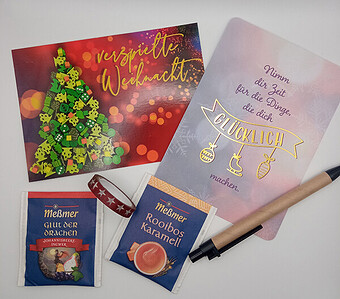 verspielte
Weihnacht
Nimm
dir Zeit
für die Dinge,
die dich
GLÜCKLICH
machen.
Meßmer
GLUT DER
DRACHEN
JOHANNISBEERE
INGWER
Meßmer
Rooibos
Karamell